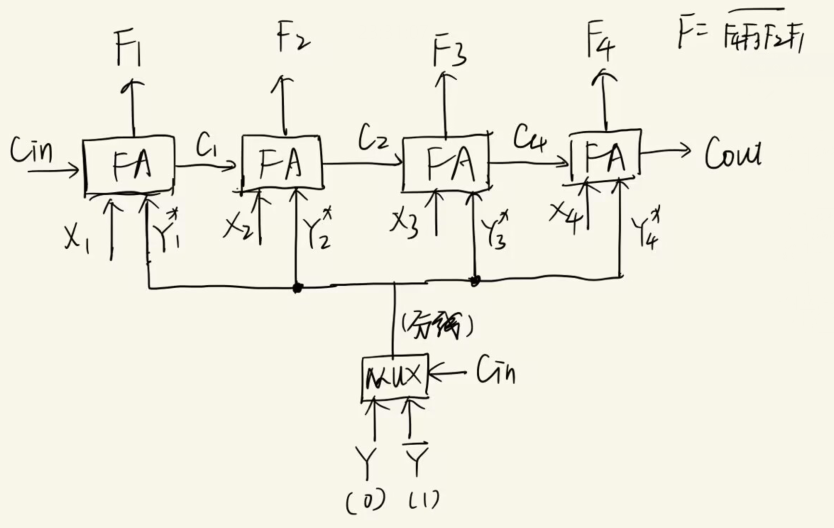 F1 F2 F3 F4 F = F4F3F2F1
Cin FA C1 FA C2 FA C4 FA Cout
X1 Y1* X2 Y2* X3 Y3* X4 Y4*
MUX Cin
Y Y̅
(0) (1)